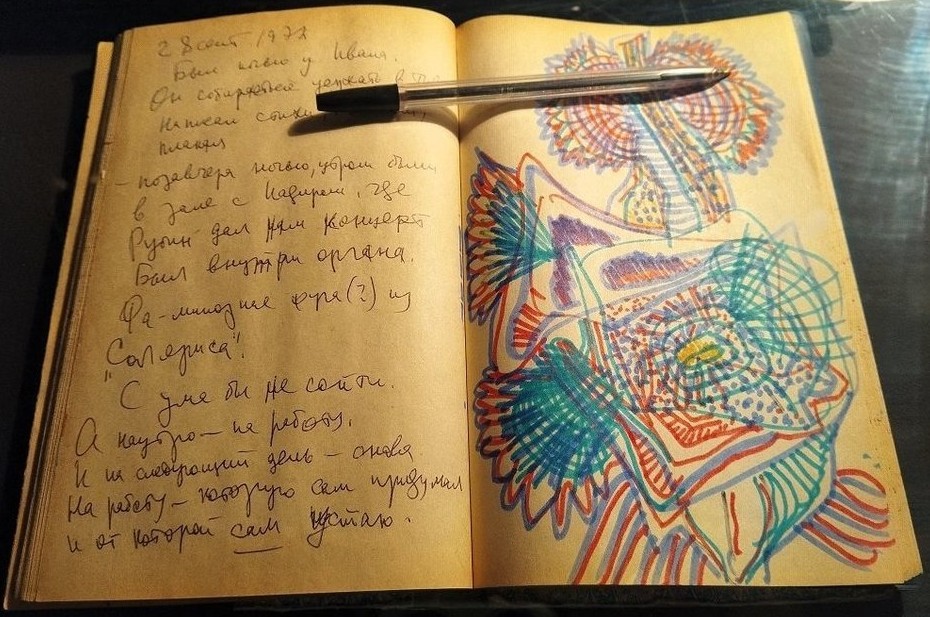 28 сент 1972
Был ночью у Ивана.
Он собирается уезжать в
Написал стихи
плакал
– позавчера ночью, утром были
в зале с Надиром, где
Рубин дал нам концерт
Был внутри органа.
Фа-минорная фуга (?) из
"Соляриса".
С ума бы не сойти.
А наутро – на работу.
И на следующий день – снова
На работу – которую сам придумал
и от которой сам устаю.